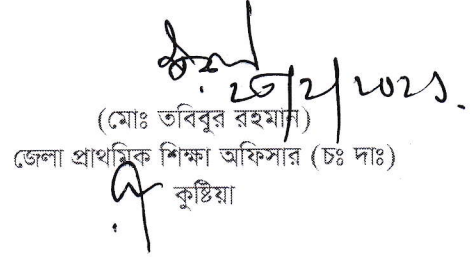 ২৩/২/২০২১
(মোঃ তবিবুর রহমান)
জেলা প্রাথমিক শিক্ষা অফিসার (চঃ দাঃ)
কুষ্টিয়া